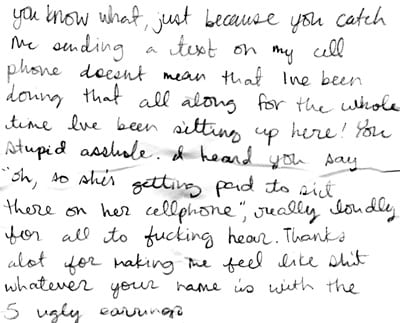 you know what, just because you catch
me sending a text on my cell
phone doesnt mean that Ive been
doing that all along for the whole
time Ive been sitting up here! You
stupid asshole. I heard you say
"oh, so she's getting paid to sit
there on her cellphone", really loudly
for all to fucking hear. Thanks
alot for making me feel like shit
whatever your name is with the
5 ugly earrings